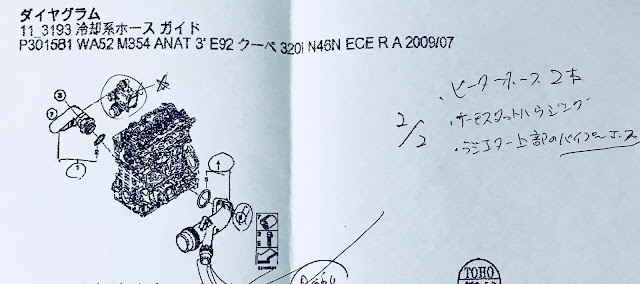 ダイヤグラム
11_3193 冷却系ホース ガイド
P301581 WA52 M354 ANAT 3' E92 クーペ 320i N46N ECE R A 2009/07
・ヒーターホース 2本
2/2
・サーモスタットハウジング
・ラジエター上部のパイプ
TOHO